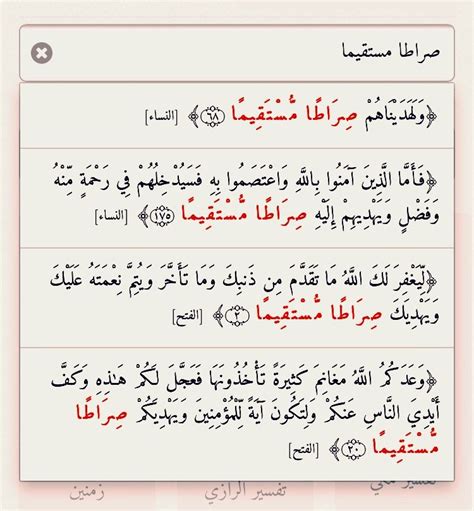 صراطا مستقيما
﴿وَلَهَدَيْنَاهُمْ صِرَاطًا مُّسْتَقِيمًا ﴿٦٨﴾﴾ [النساء]
﴿فَأَمَّا الَّذِينَ آمَنُوا بِاللَّهِ وَاعْتَصَمُوا بِهِ فَسَيُدْخِلُهُمْ فِي رَحْمَةٍ مِّنْهُ
وَفَضْلٍ وَيَهْدِيهِمْ إِلَيْهِ صِرَاطًا مُّسْتَقِيمًا ﴿١٧٥﴾﴾ [النساء]
﴿لِّيَغْفِرَ لَكَ اللَّهُ مَا تَقَدَّمَ مِن ذَنبِكَ وَمَا تَأَخَّرَ وَيُتِمَّ نِعْمَتَهُ عَلَيْكَ
وَيَهْدِيَكَ صِرَاطًا مُّسْتَقِيمًا ﴿٢﴾﴾ [الفتح]
﴿وَعَدَكُمُ اللَّهُ مَغَانِمَ كَثِيرَةً تَأْخُذُونَهَا فَعَجَّلَ لَكُمْ هَـٰذِهِ وَكَفَّ
أَيْدِيَ النَّاسِ عَنكُمْ وَلِتَكُونَ آيَةً لِّلْمُؤْمِنِينَ وَيَهْدِيَكُمْ صِرَاطًا
مُّسْتَقِيمًا ﴿٢٠﴾﴾ [الفتح]
تفسير الرازي زمنين